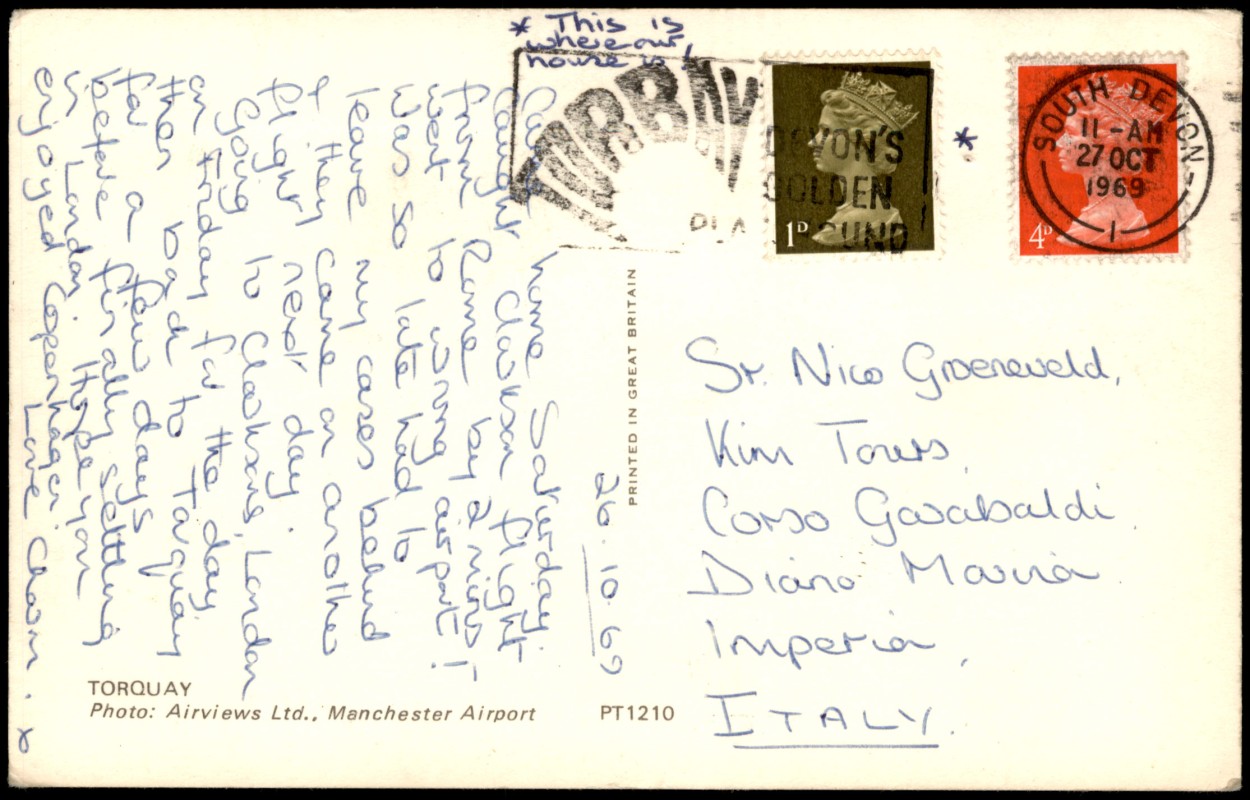 * This is
where our
house is!
TORBAY
DEVON'S
GOLDEN
PLAYGROUND
1D
*
4D
SOUTH DEVON
11-AM
27 OCT
1969
1
26.10.69
Came home Saturday.
Caught Clarkson flight
from Rome by 2 mins -
went to wrong airport!
Was so late had to
leave my cases behind
& they came on another
flight next day.
Going to Clarksons, London
on Friday for the day
then back to Torquay
for a few days
before finally settling
in London. Hope you
enjoyed Copenhagen. Love Charm. x
PRINTED IN GREAT BRITAIN
Sr. Nico Groeneveld,
Kim Tours,
Corso Garabaldi,
Diano Marina
Imperia,
ITALY.
TORQUAY
Photo: Airviews Ltd., Manchester Airport
PT1210